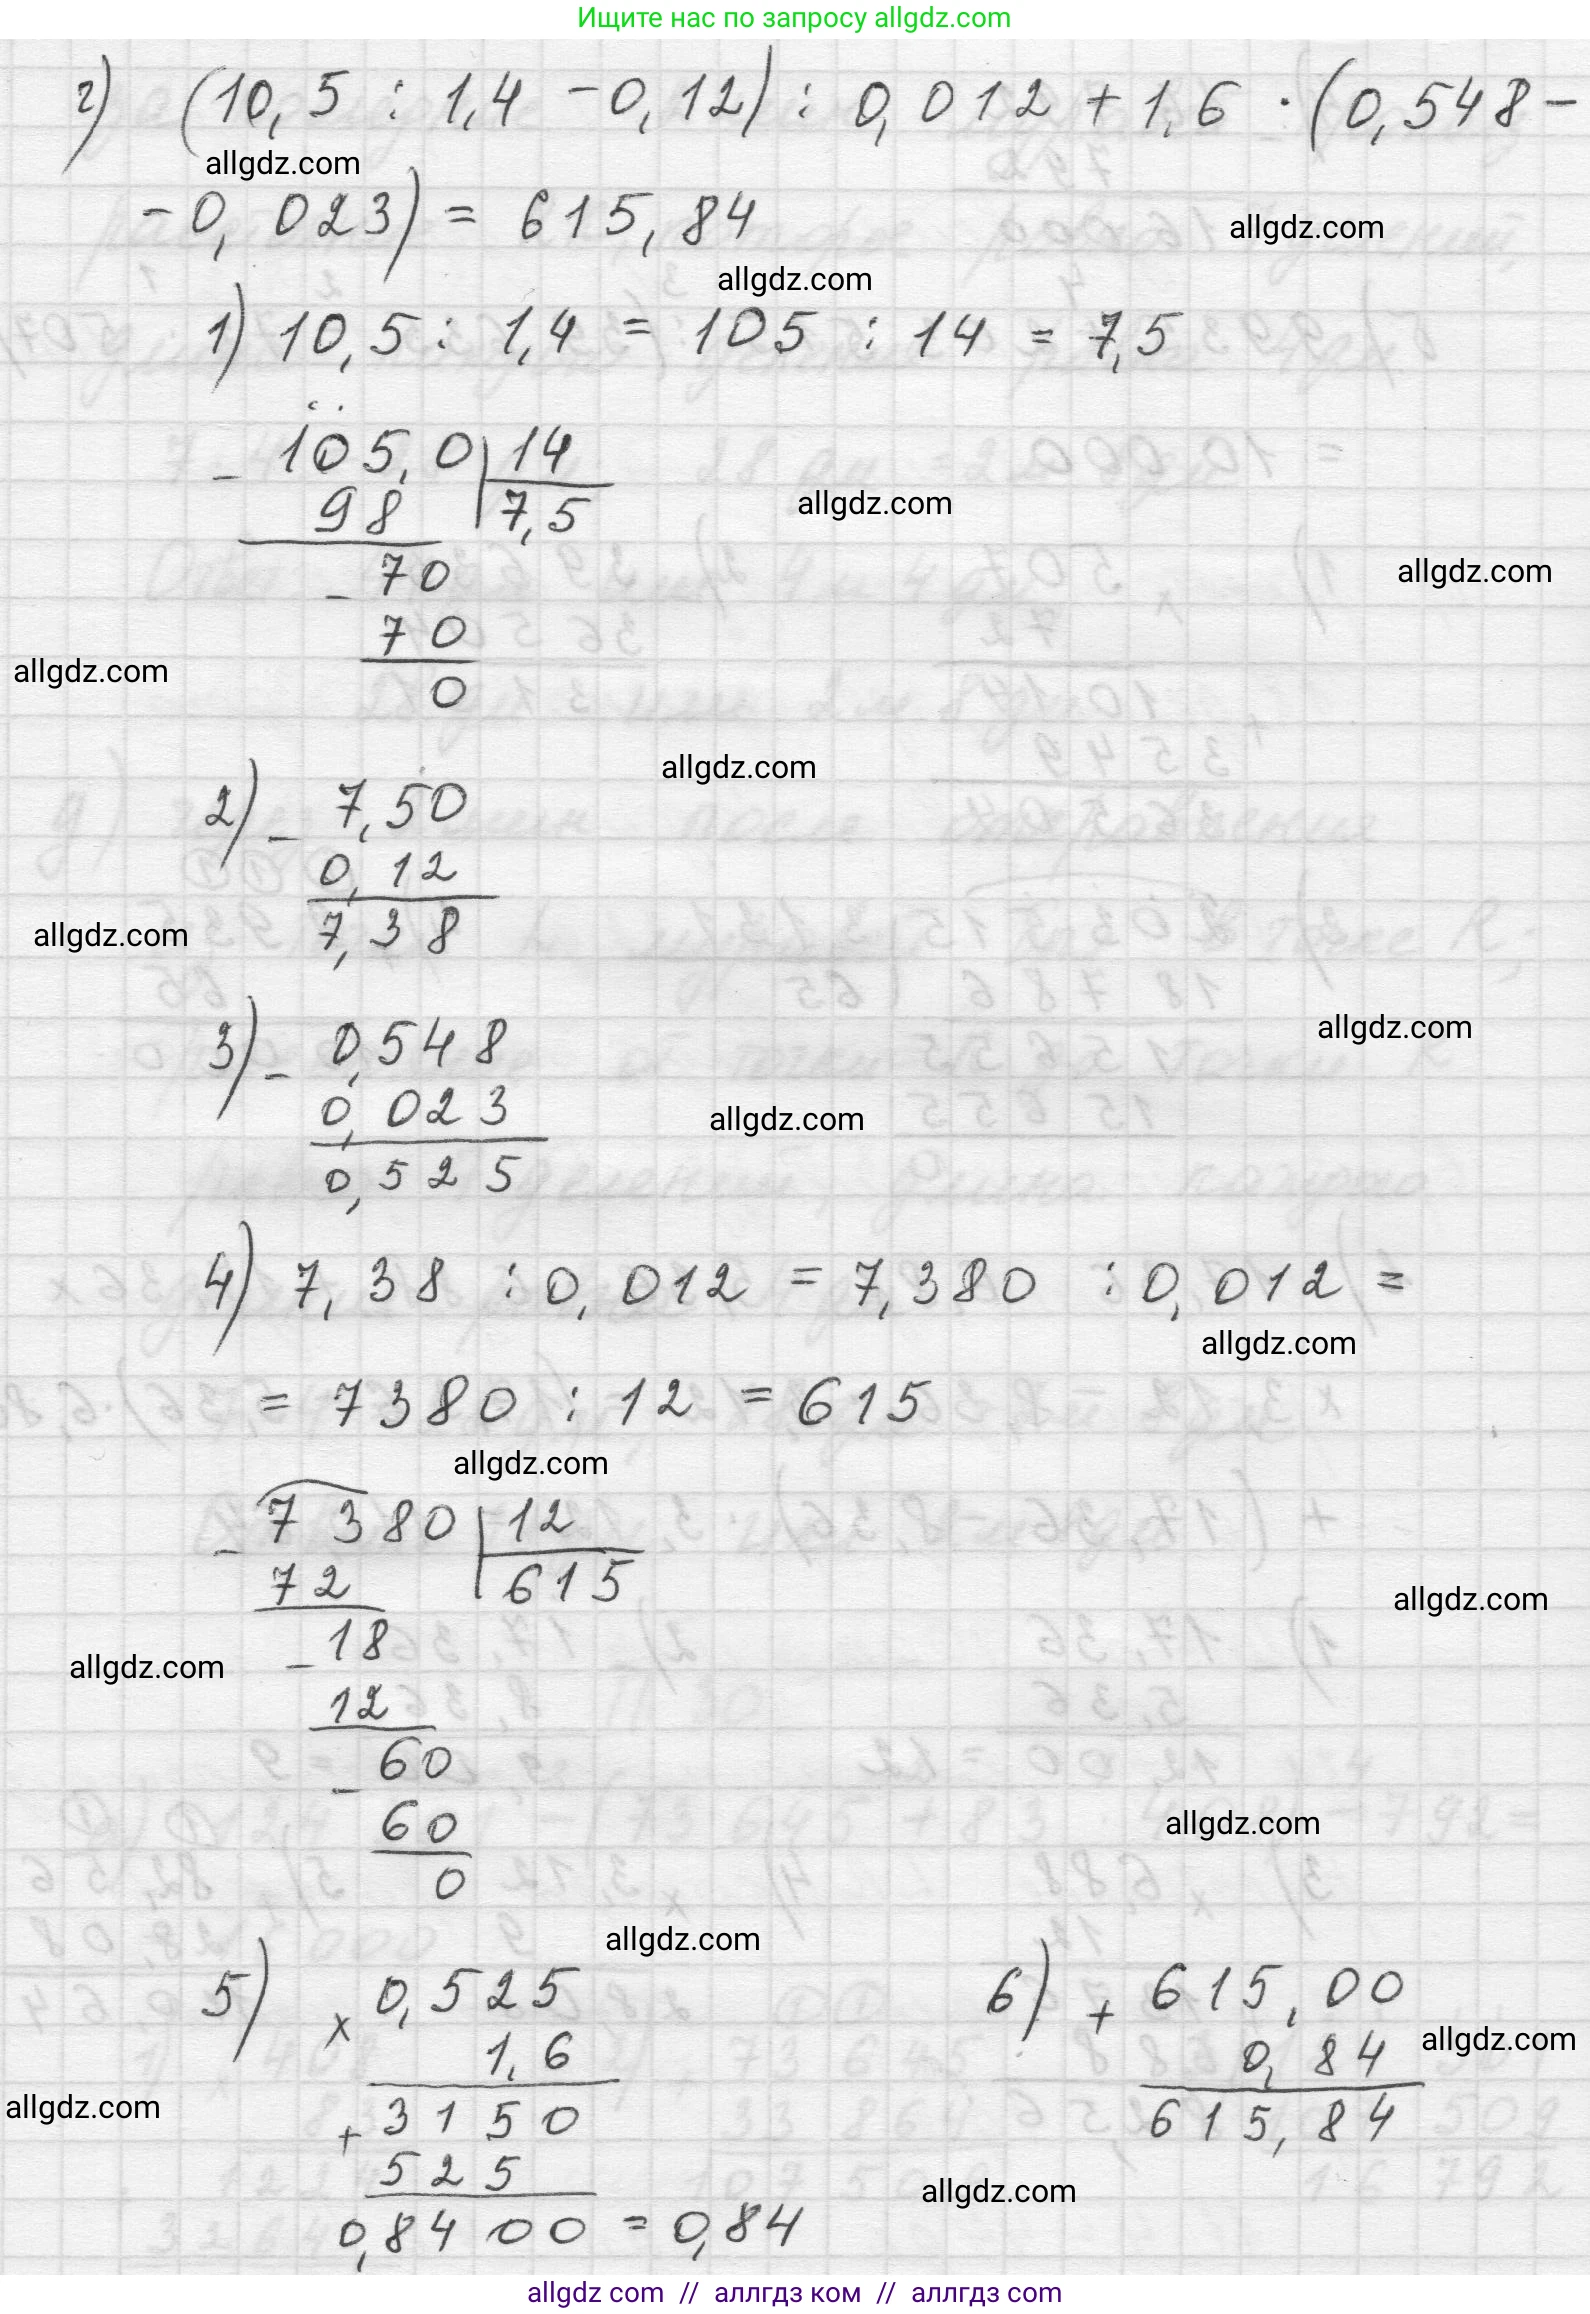 Ищите нас по запросу allgdz.com
г) (10,5 : 1,4 - 0,12) : 0,012 + 1,6 · (0,548 -
allgdz.com
- 0,023) = 615,84
allgdz.com
allgdz.com
1) 10,5 : 1,4 = 105 : 14 = 7,5
- 105,0 | 14
98 | 7,5
allgdz.com
- 70
allgdz.com
70
allgdz.com
0
allgdz.com
2) - 7,50
0,12
7,38
allgdz.com
3) - 0,548
allgdz.com
0,023
allgdz.com
0,525
4) 7,38 : 0,012 = 7,380 : 0,012 =
allgdz.com
= 7380 : 12 = 615
allgdz.com
- 7380 | 12
72 | 615
allgdz.com
- 18
allgdz.com
12
- 60
60
allgdz.com
0
allgdz.com
5) × 0,525
1,6
+ 3150
525
0,8400 = 0,84
allgdz.com
6) + 615,00
0,84
allgdz.com
615,84
allgdz.com
allgdz com // аллгдз ком // аллгдз com